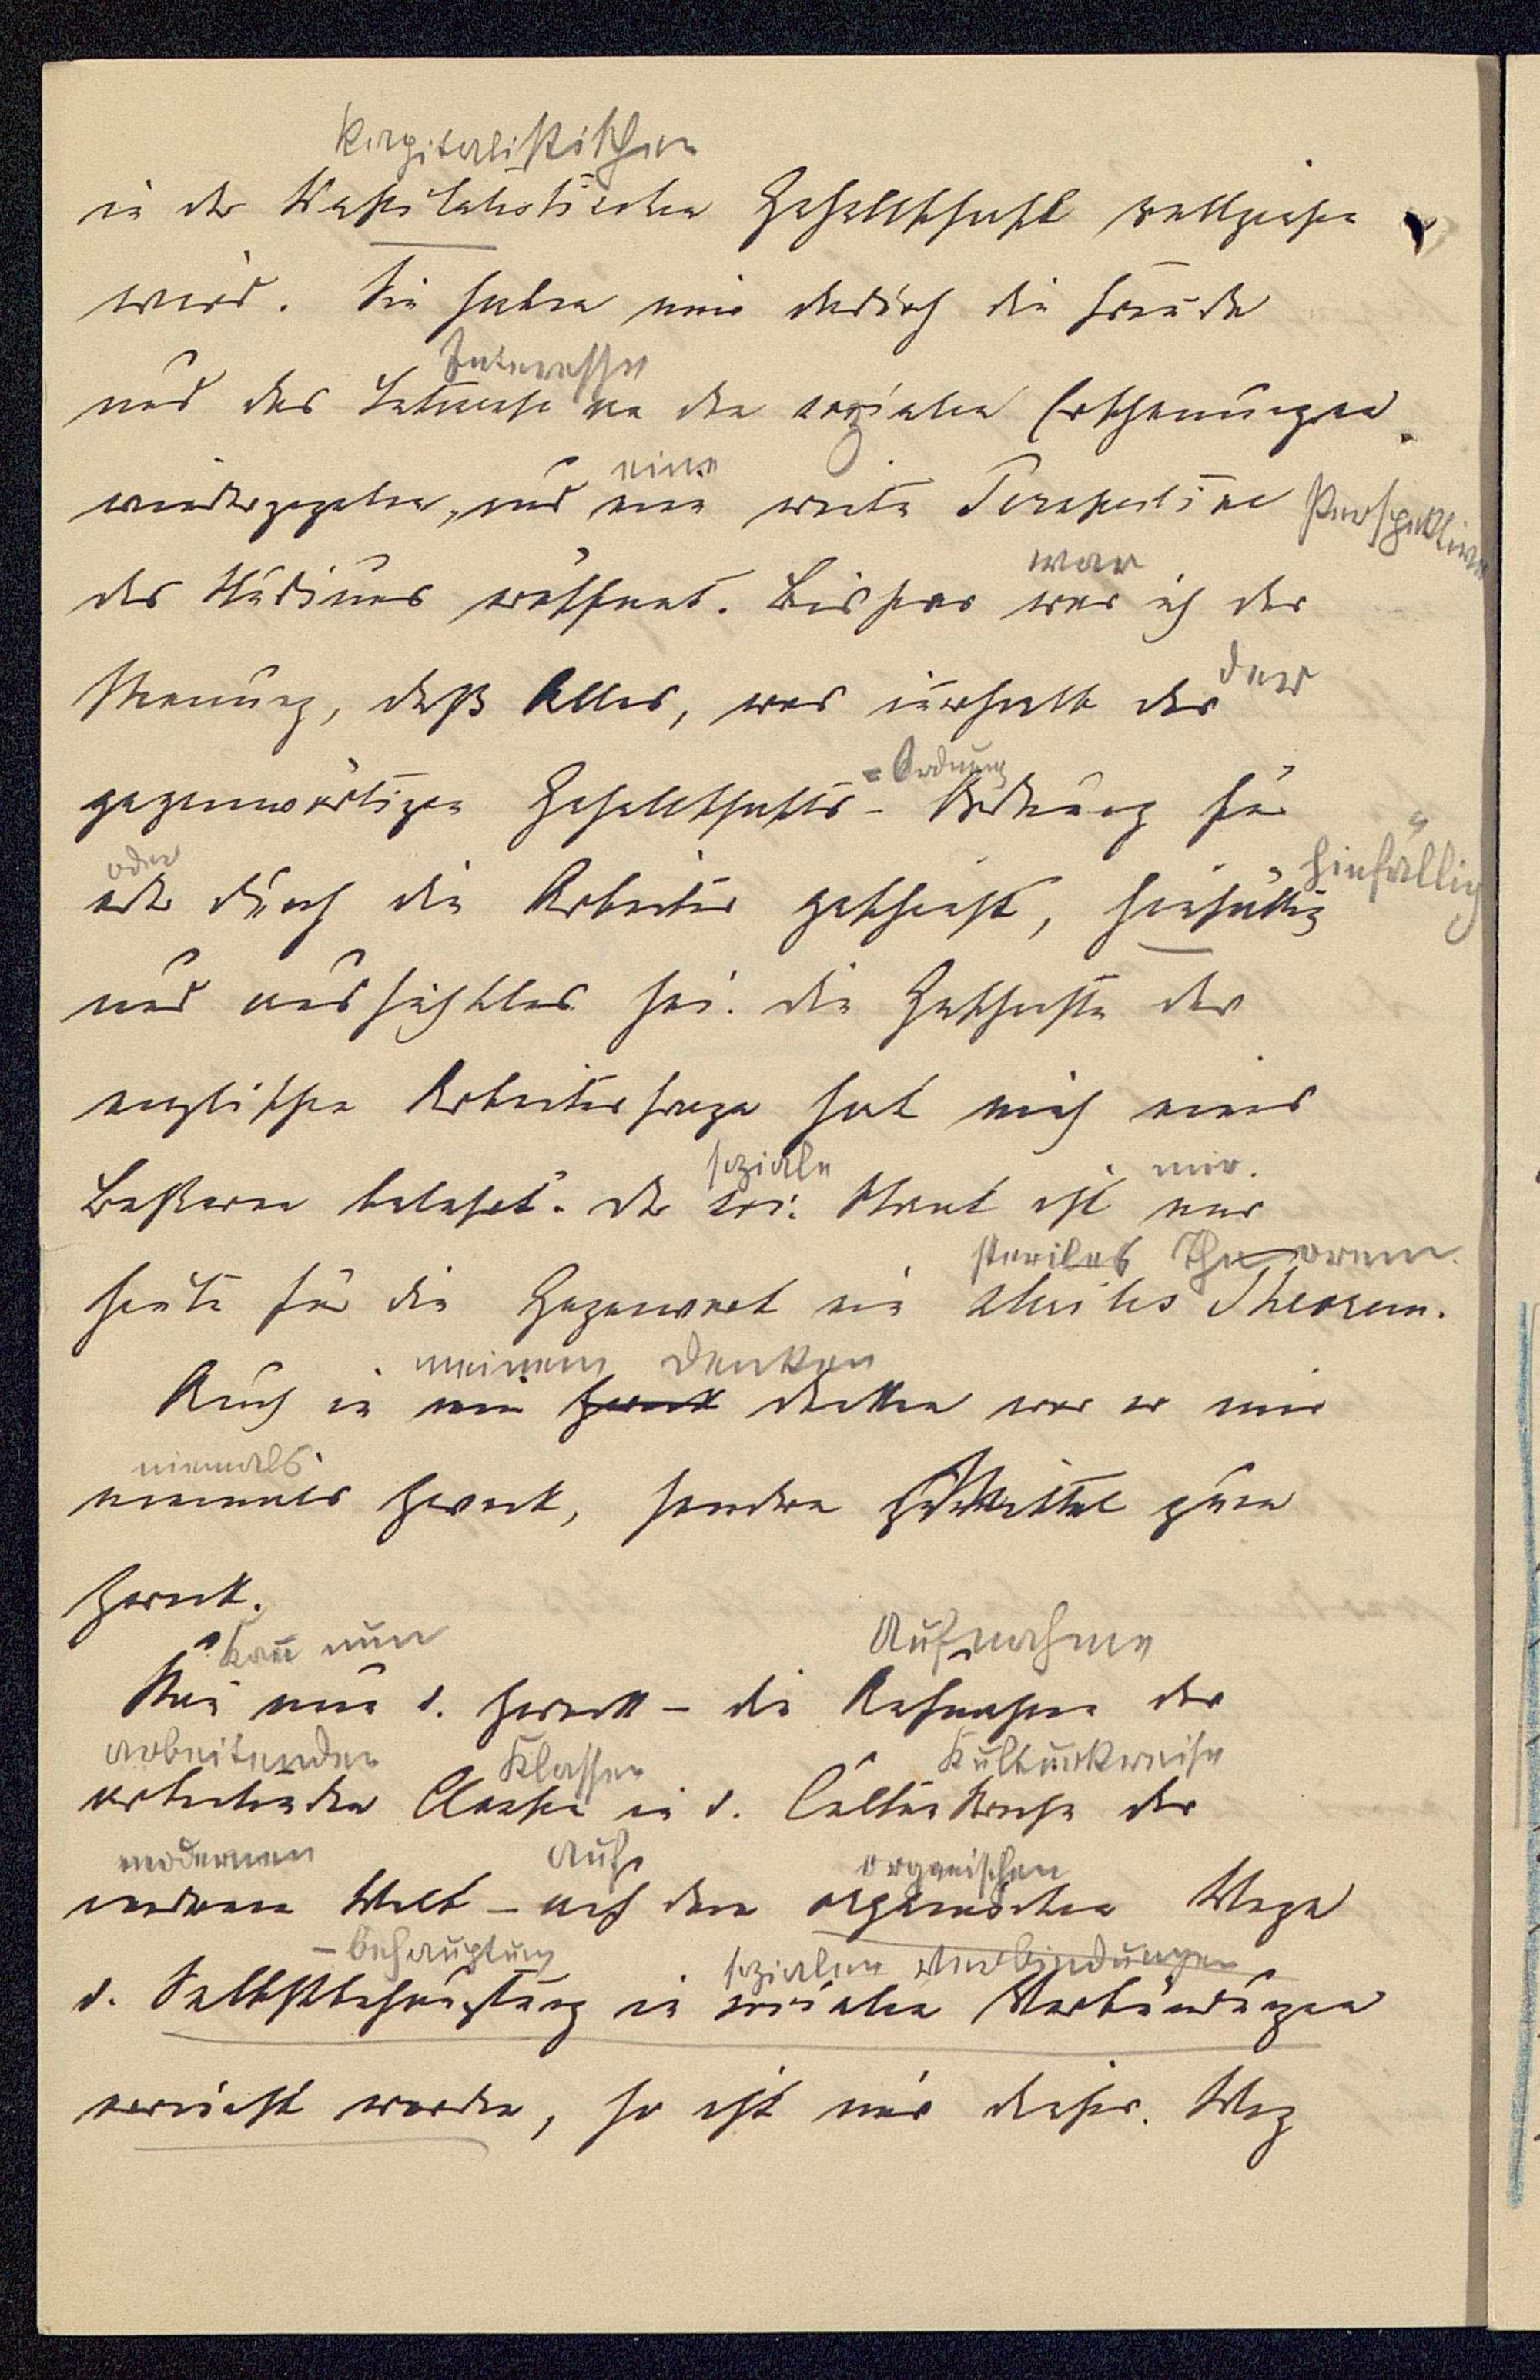 kapitalistischen
in der kapitalistischen Gesellschaft vollziehen
wird. Sie haben mir dadurch die Freude
Interesse
und das Interesse an den sozialen Erscheinungen
eine
wiedergegeben, und eine weite Perspektive Perspektive
des Studiums eröffnet. Bisher war ich der
war
Meinung, daß Alles, was innerhalb der
der
= Ordnung
gegenwärtigen Gesellschafts-Ordnung für
oder hinfällig
oder durch die Arbeiter geschieht, hinfällig
und aussichtslos sei. Die Geschichte der
englischen Arbeiterfrage hat mich eines
soziale mir.
Beßeren belehrt. Der soz. Staat ist mir
steriles Theorem.
heute für die Gegenwart ein steriles Theorem.
meinem Denken
Auch in mein Zweck denken war er mir
niemals
niemals Zweck, sondern Mittel zum
Zweck.
kan̄ nun Aufnahme
Kan̄ nun d. Zweck – die Aufnahme der
arbeitenden Klassen Kulturkreise
arbeitenden Classen in d. Culturkreise der
modernen auf organischen
modernen Welt – auf dem organischen Wege
– behauptung sozialen Verbindungen
d. Selbstbehauptung in socialen Verbindungen
erreicht werden, so ist mir dieser Weg